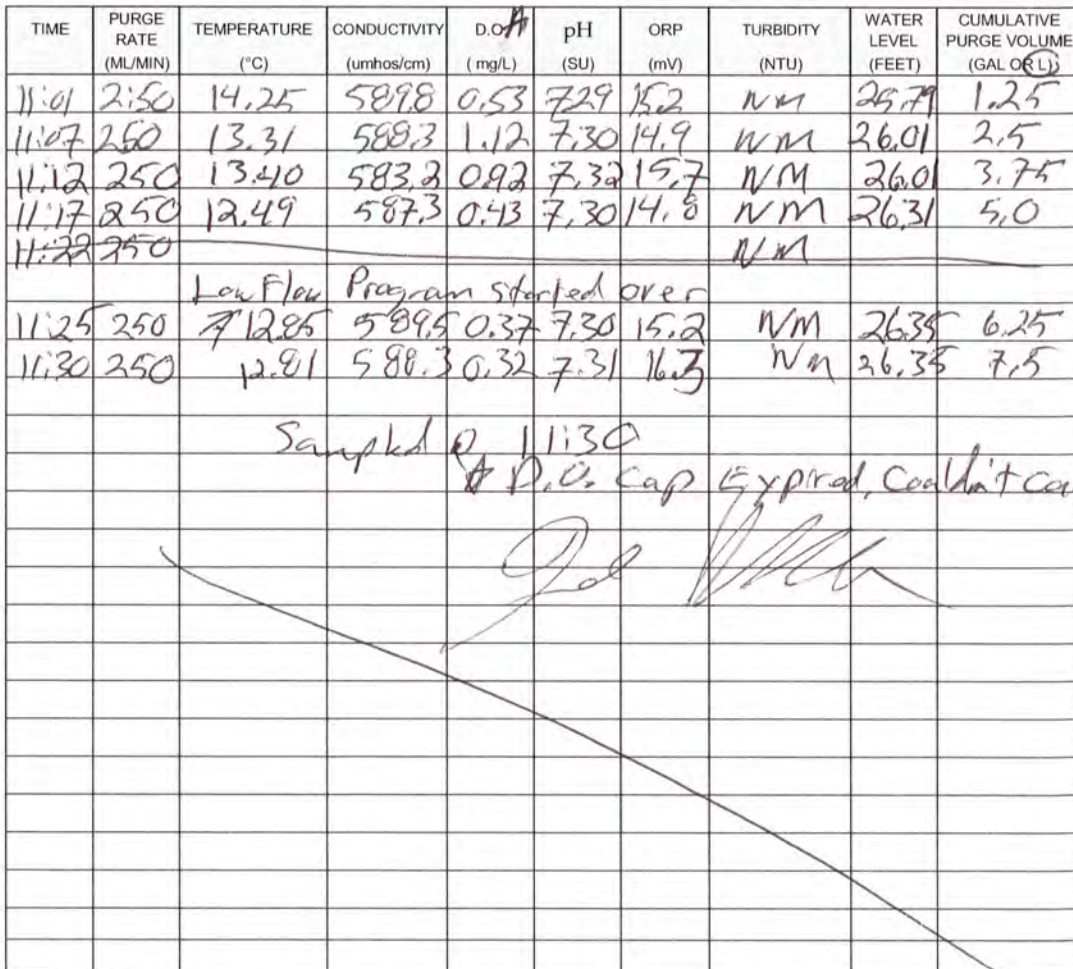 TIME PURGE RATE (ML/MIN) TEMPERATURE (°C) CONDUCTIVITY (umhos/cm) D.O. (mg/L) pH (SU) ORP (mV) TURBIDITY (NTU) WATER LEVEL (FEET) CUMULATIVE PURGE VOLUME (GAL OR L)
11:01 2:50 14.25 589.8 0.53 7.29 15.2 NM 25.79 1.25
11:07 250 13.31 588.3 1.12 7.30 14.9 NM 26.01 2.5
11:12 250 13.40 583.2 0.92 7.32 15.7 NM 26.01 3.75
11:17 250 12.49 587.3 0.43 7.30 14.8 NM 26.31 5.0
11:22 250 NM
Low Flow Program started over
11:25 250 12.85 589.5 0.37 7.30 15.2 NM 26.35 6.25
11:30 250 12.81 588.3 0.32 7.31 16.3 NM 26.35 7.5
Sampled @ 11:30
D.O. Cap Expired, Couldn't